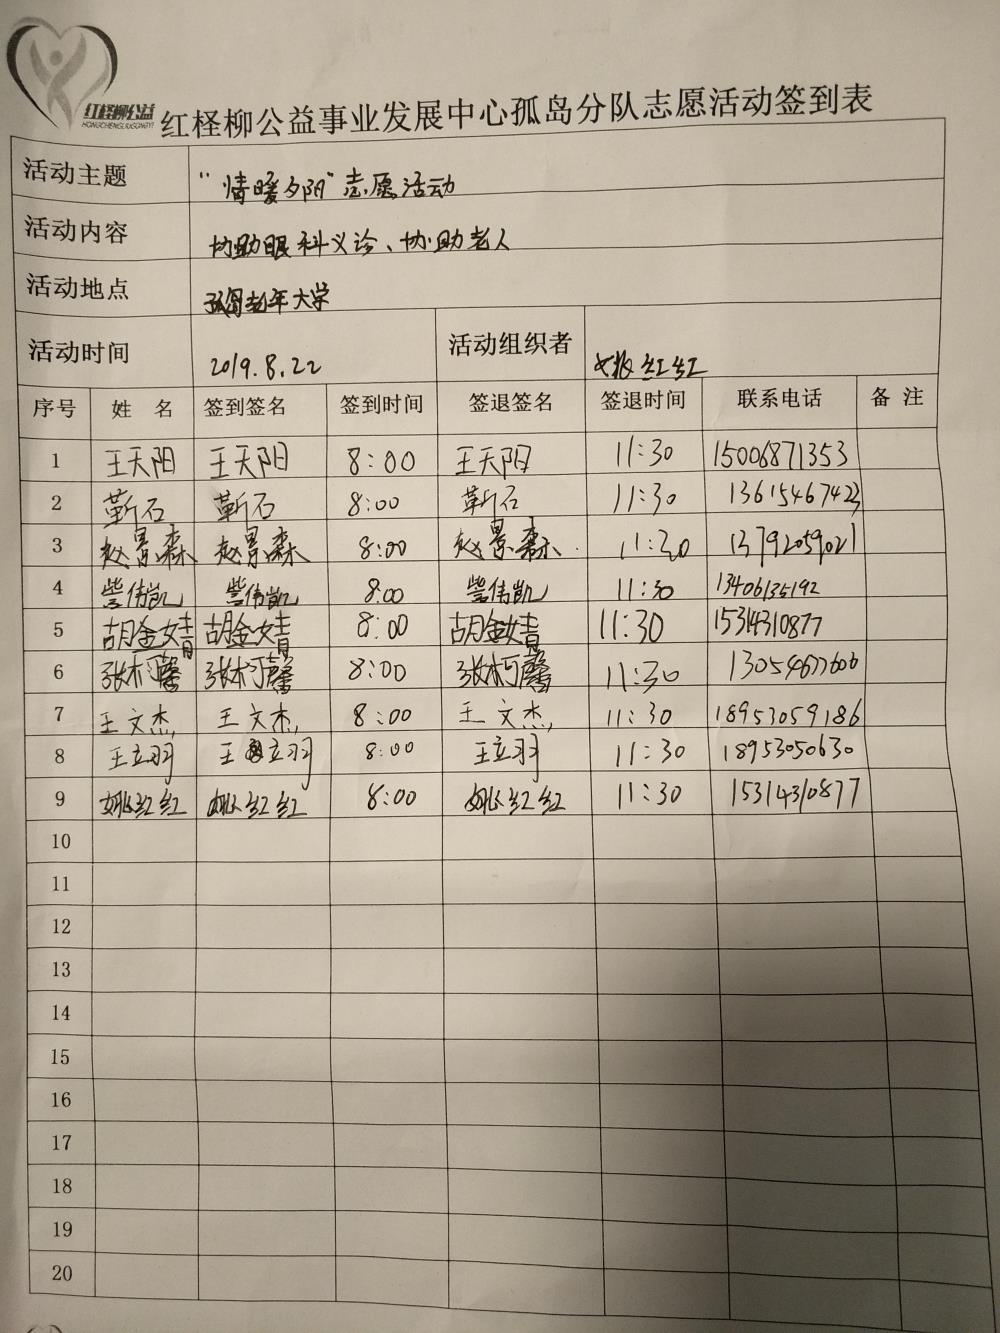 红柽柳公益
HONGCHENGLIUGONGYI
红柽柳公益事业发展中心孤岛分队志愿活动签到表
活动主题 “情暖夕阳”志愿活动
活动内容 协助眼科义诊、协助老人
活动地点 孤岛老年大学
活动时间 2019.8.22 活动组织者 姚红红
序号 姓 名 签到签名 签到时间 签退签名 签退时间 联系电话 备 注
1 王天阳 王天阳 8:00 王天阳 11:30 15006871353
2 靳石 靳石 8:00 靳石 11:30 13615467423
3 赵景森 赵景森 8:00 赵景森 11:30 13792059021
4 訾伟凯 訾伟凯 8:00 訾伟凯 11:30 13406135192
5 胡金婧 胡金婧 8:00 胡金婧 11:30 15314310877
6 张柯馨 张柯馨 8:00 张柯馨 11:30 13054677606
7 王文杰 王文杰 8:00 王文杰 11:30 18953059186
8 王立羽 王立羽 8:00 王立羽 11:30 18953050630
9 姚红红 姚红红 8:00 姚红红 11:30 15314310877
10
11
12
13
14
15
16
17
18
19
20